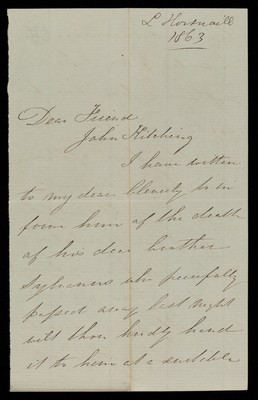 L Horsnaill
1863
Dear Friend
John Kitching
I have written
to my dear
form him of the death
of his dear brother
Sylvanus who peacefully
passed away last night
wilt thou kindly hand
it to him at a suitable